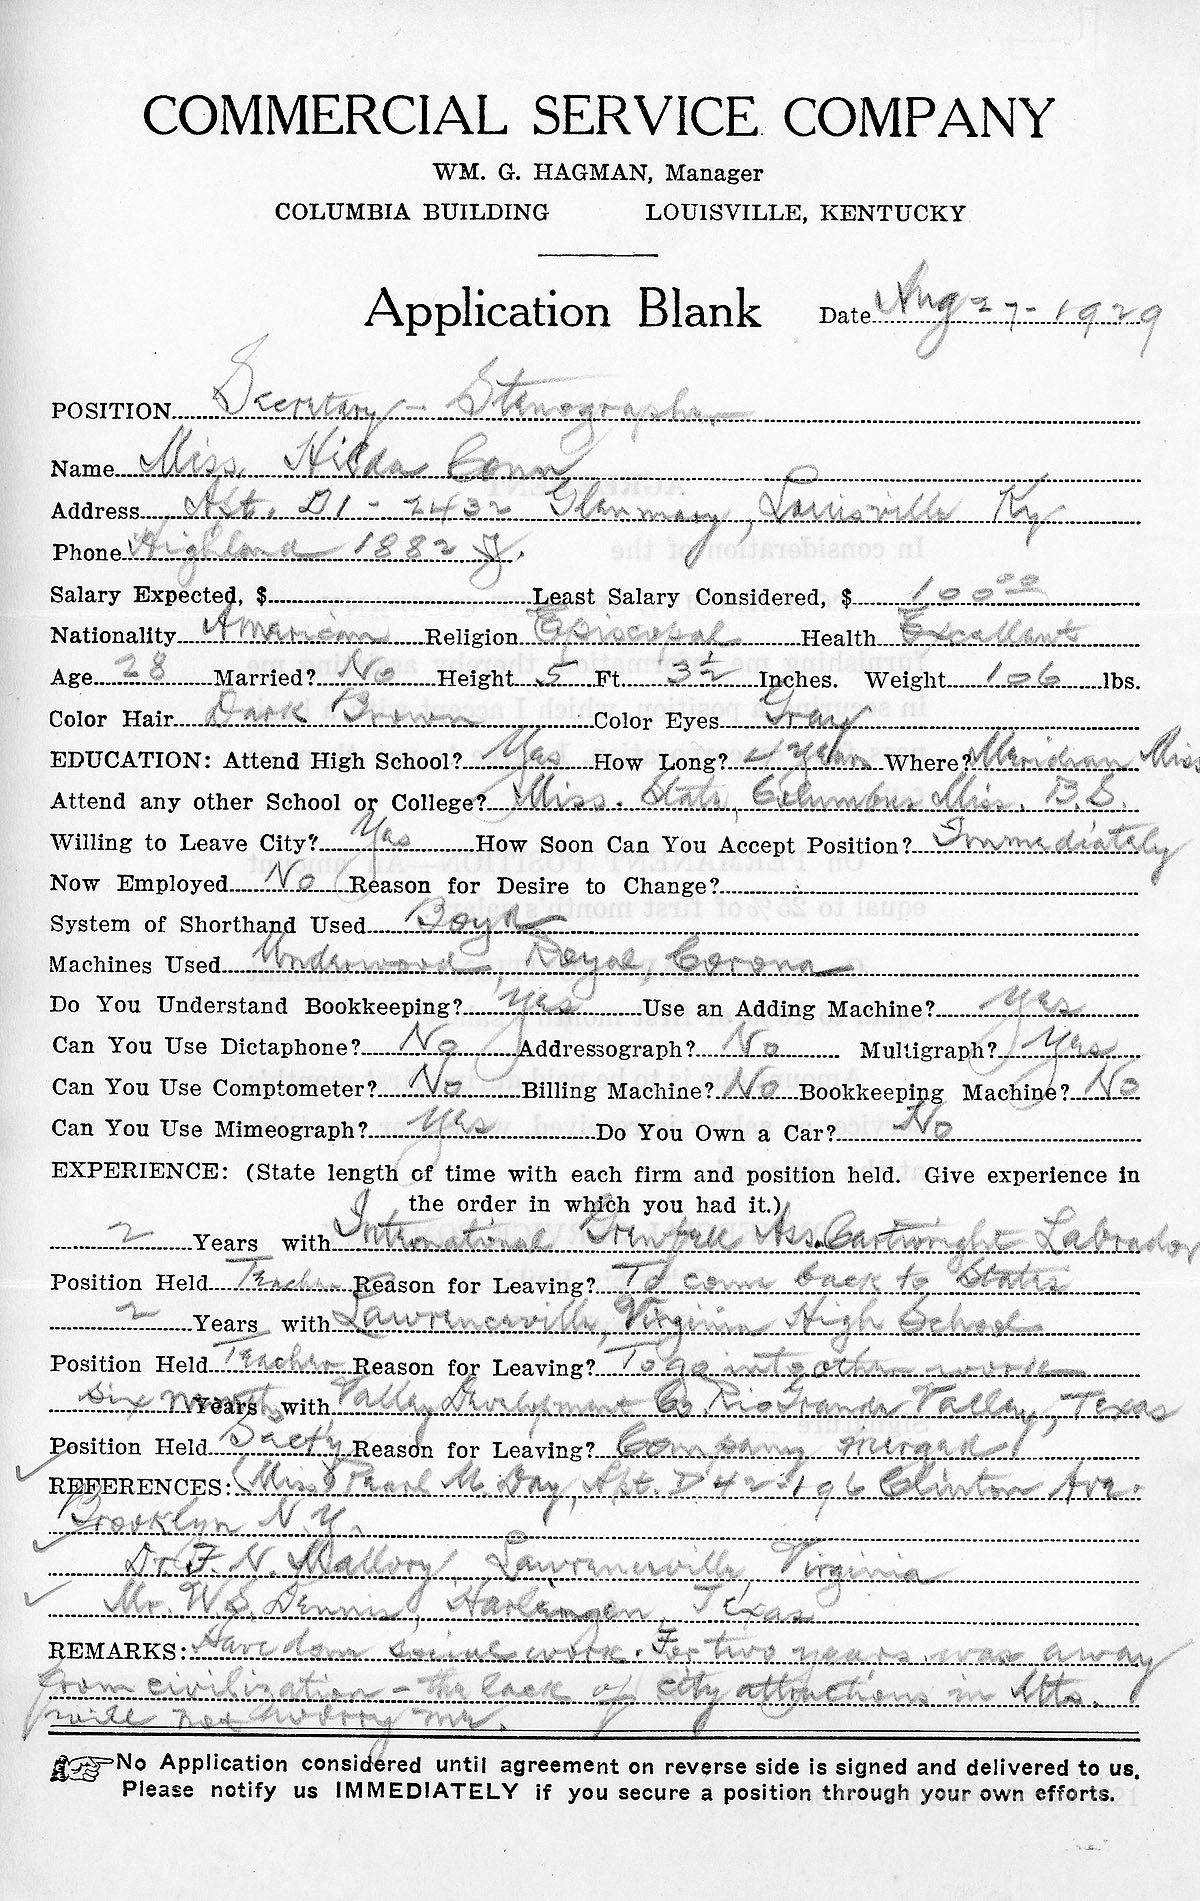 COMMERCIAL SERVICE COMPANY
WM. G. HAGMAN, Manager
COLUMBIA BUILDING LOUISVILLE, KENTUCKY
Application Blank Date Aug 27-1929
POSITION Secretary - Stenographer
Name Miss Hilda Conn
Address Apt. D1 - 2432 Glenmary, Louisville Ky
Phone Highland 1882 J.
Salary Expected, $ Least Salary Considered, $ 100.00
Nationality American Religion Episcopal Health Excellent
Age 28 Married? No Height 5 Ft 3½ Inches. Weight 106 lbs.
Color Hair Dark Brown Color Eyes Gray
EDUCATION: Attend High School? Yes How Long? 4 years Where? Meridian Miss
Attend any other School or College? Miss. State, Columbus Miss. B.S.
Willing to Leave City? Yes How Soon Can You Accept Position? Immediately
Now Employed No Reason for Desire to Change?
System of Shorthand Used Boyd
Machines Used Underwood, Royal, Corona
Do You Understand Bookkeeping? Yes Use an Adding Machine? Yes
Can You Use Dictaphone? No Addressograph? No Multigraph? Yes
Can You Use Comptometer? No Billing Machine? No Bookkeeping Machine? No
Can You Use Mimeograph? Yes Do You Own a Car? No
EXPERIENCE: (State length of time with each firm and position held. Give experience in
the order in which you had it.)
2 Years with International Grenfell Ass. Cartwright Labrador
Position Held Teacher Reason for Leaving? To come back to States
2 Years with Lawrenceville, Virginia High School
Position Held Teacher Reason for Leaving? To go into other work
Six months Years with Valley Development Co. Rio Grande Valley, Texas
Position Held Secty Reason for Leaving? Company merged
REFERENCES: Miss Pearl M. Day, Apt. D42-196 Clinton Ave.
Brooklyn N.Y.
Dr. F. N. Mallory, Lawrenceville, Virginia
Mr. W.S. Dennis, Harlingen, Texas
REMARKS: Have done social work. For two years was away
from civilization - the lack of city attractions in Mts.
will not worry me.
No Application considered until agreement on reverse side is signed and delivered to us.
Please notify us IMMEDIATELY if you secure a position through your own efforts.